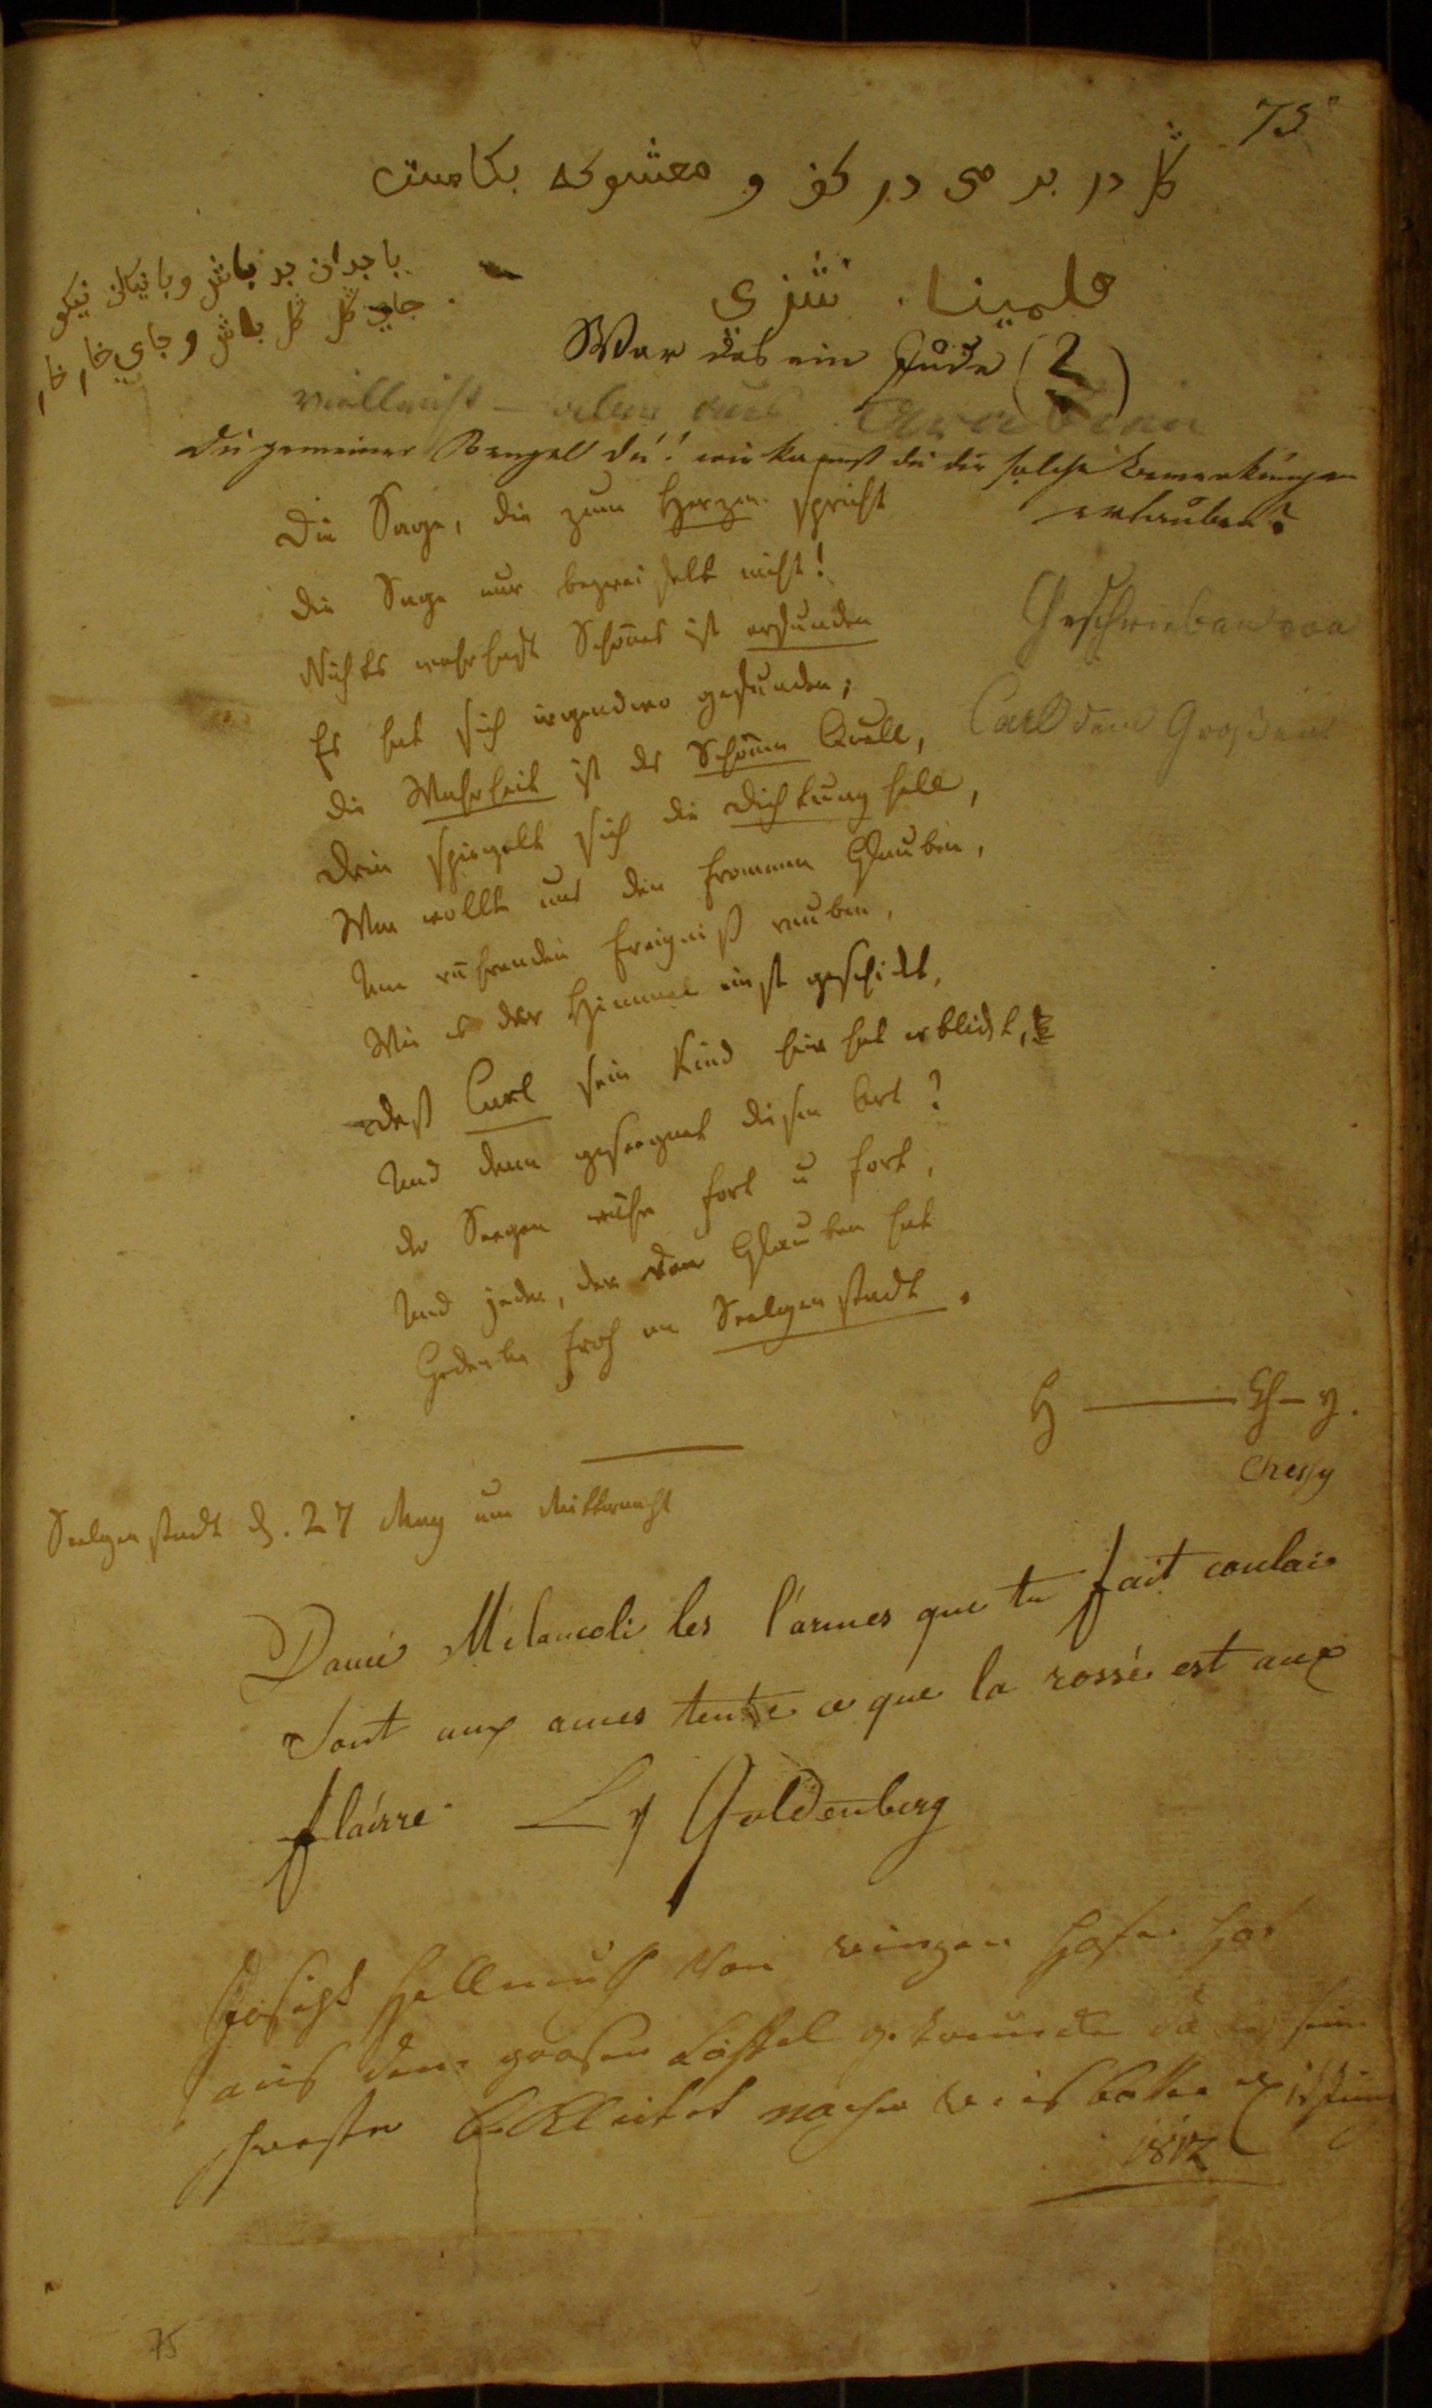 75
گل در بر می در کف و معشوکه بکامست
هلمینا شزی
با بدان بد باش و با نیکان نیکو
جای گل گل باش و جای خار خار
War das ein Jude (?)
vielleicht – aber eine Arabein
Du gemeiner Bengell du! wie kannst du dir solche Bemerkungen
erlauben?
Die Sage, die zum Herzen spricht
Die Sage nur bezweifelt nicht!
Nichts wahrhaft Schönes ist erfunden
Es hat sich irgendwo gefunden;
Die Wahrheit ist des Schönen Quell,
Drin spiegelt sich die Dichtung hell,
Wer wollte uns den frommen Glauben,
Am rührenden Ereigniß rauben,
Wie es der Himmel einst geschikt,
Daß Carl sein Kind hier hat erblickt,
Und dann gesegnet diesen Ort?
Der Seegen ruhe fort u fort,
Und jeder, der den Glauben hat
Gedenke froh an Seelgenstadt.
Geschrieben von
Carl dem Großen
H ——— Ch–y.
Chezy
Seelgenstadt d. 27 May um Mitternacht
Dauce Mélancoli les l'armes que tu fait coulair
Sont aux ames tentre ce que la rossé est aux
flairre. Ly Goldenberg
Hellmuth von hat
aus dem grosen Löffel getrunken da er sein
1812
75